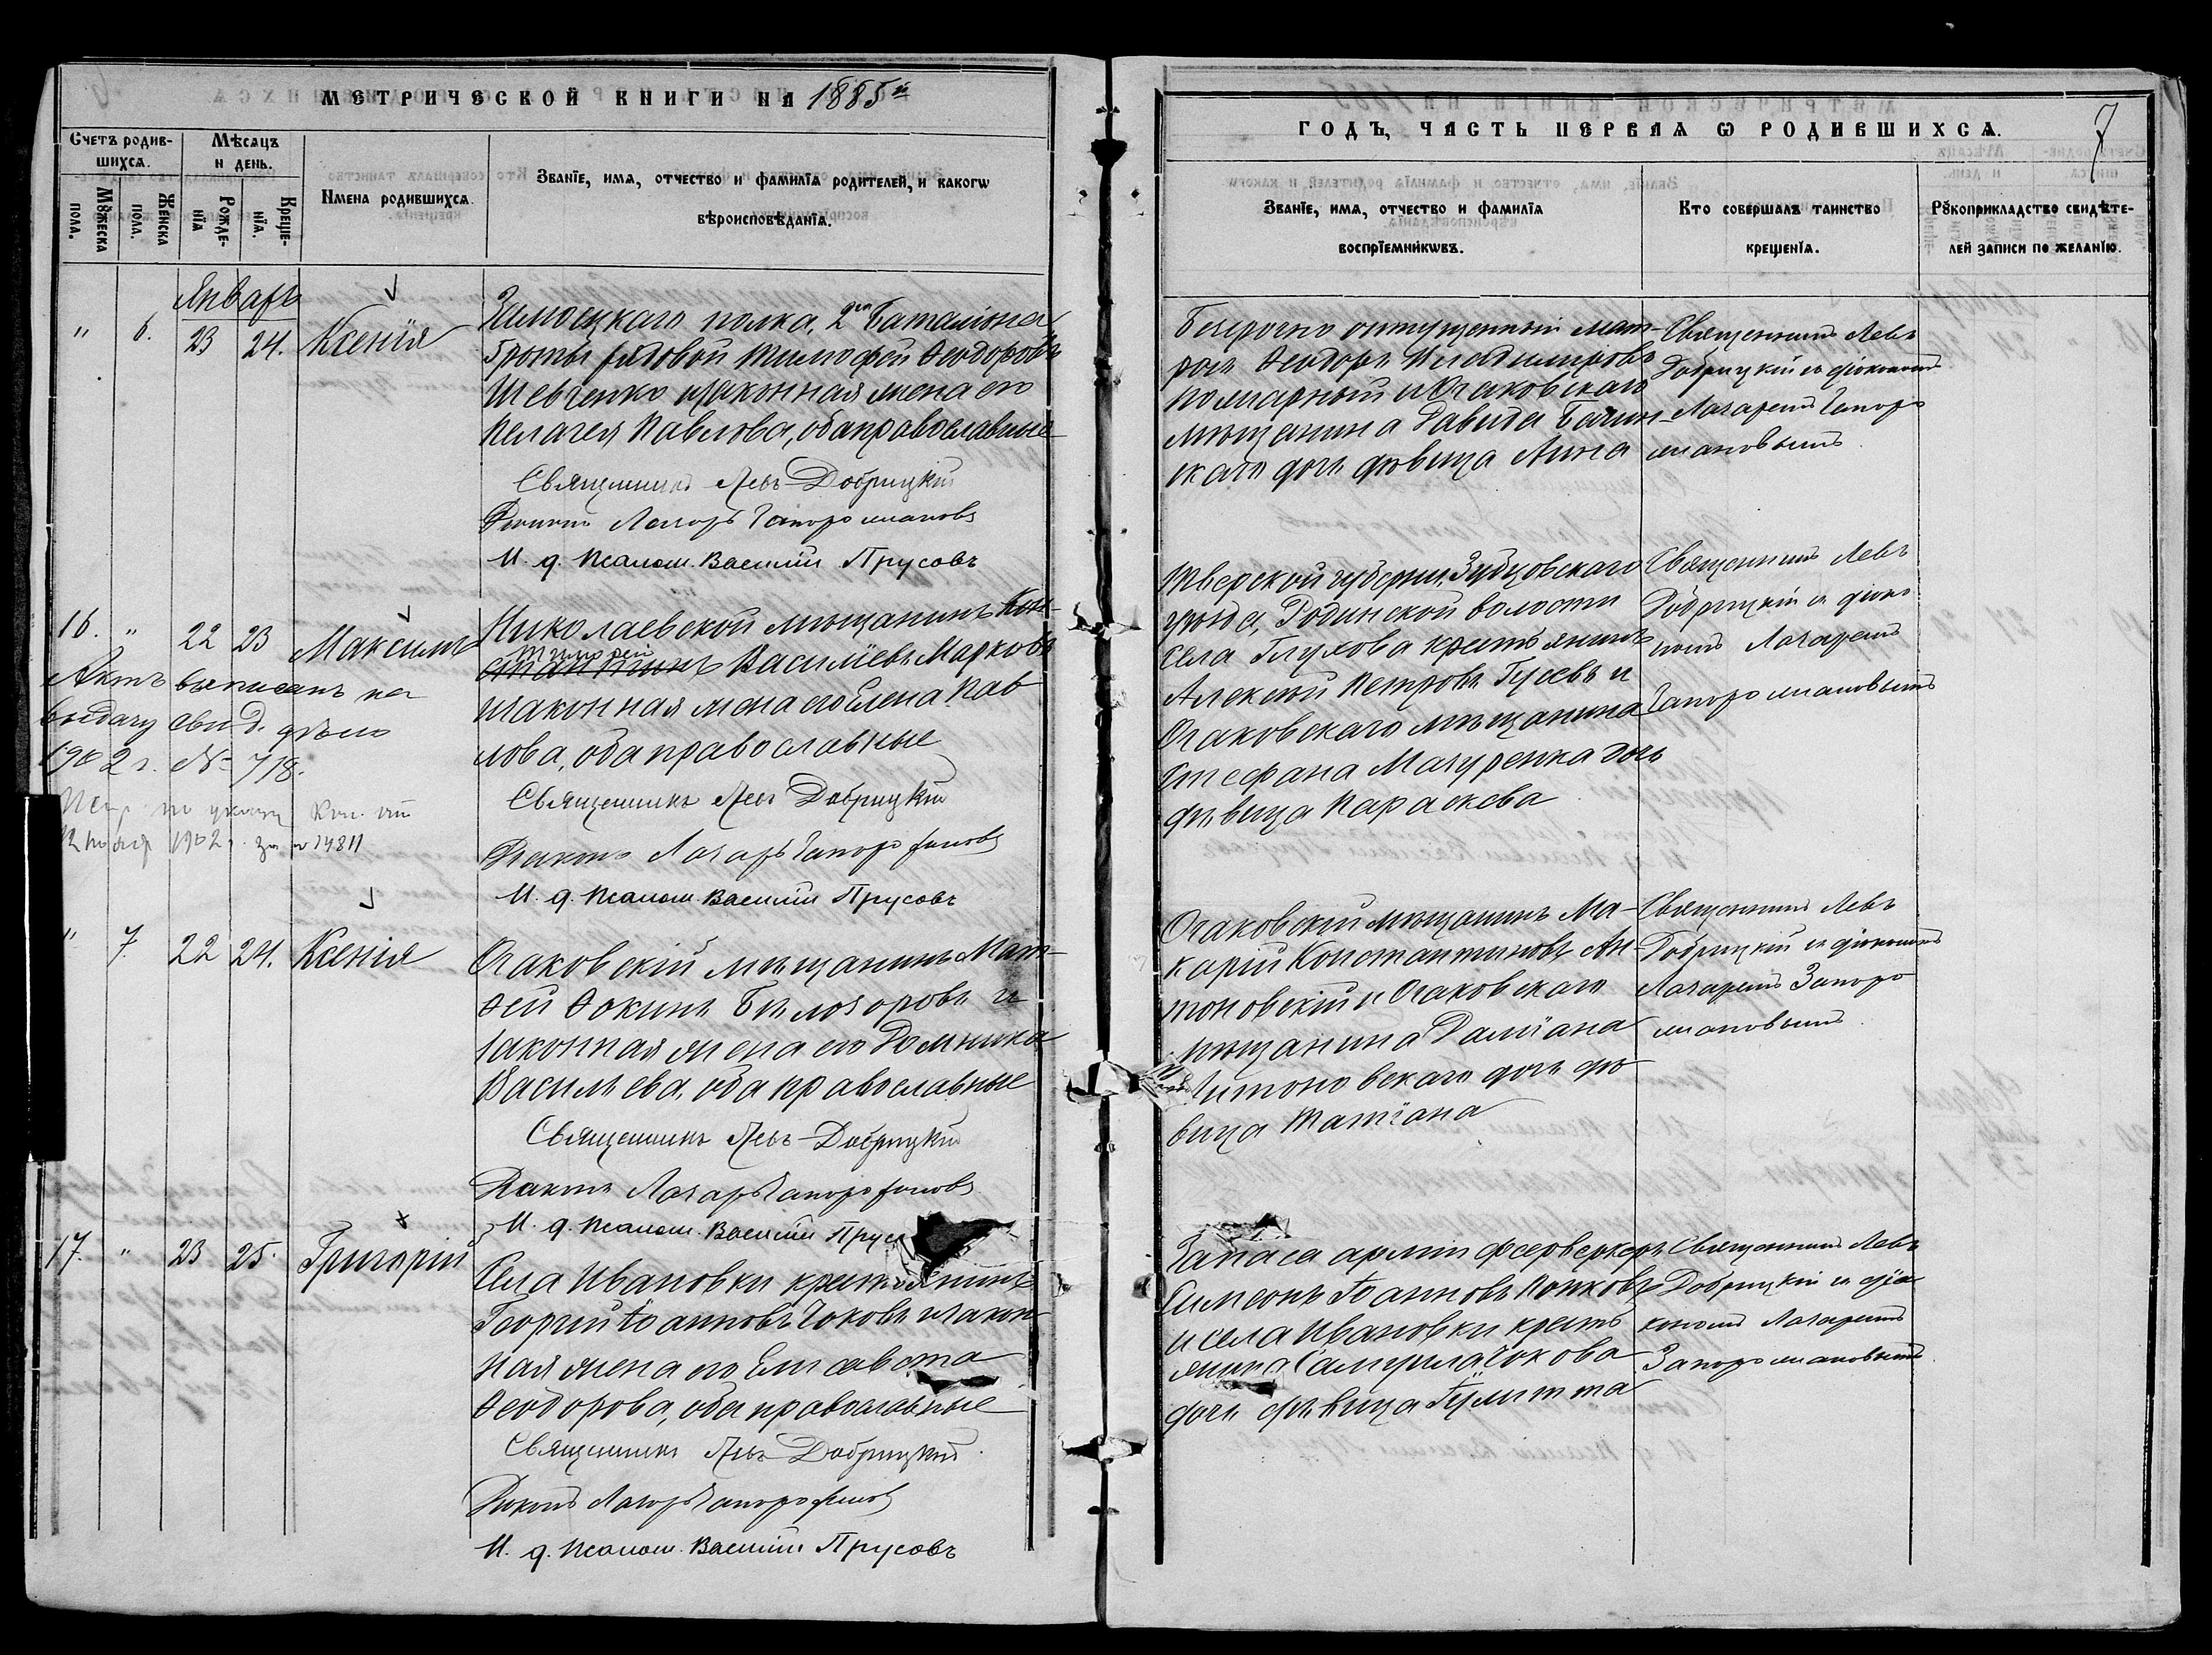 МЕТРИЧЕСКОЙ КНИГИ НА 1885й
Счетъ родив-
шихся.
Мꙋжеска
пола.
Женска
пола.
Мѣсяцъ
и день.
Рожде-
нїя
Креще-
нїя.
Имена родившихся.
Званїе, имя, отчество и фамилїя родителей, и какогѡ
вѣроисповѣданїя.
Январь
" 6. 23 24. Ксенія
Замосцкаго полка, 2го Баталіона
роты рядовой Тимофей Ѳеодоровъ
Шевченко и законная жена его
Пелагея Павлова, оба православные
Священникъ Левъ Добрицкій
Діаконъ Лазарь
И. д. Псалом. Василій Прусовъ
16. " 22 23 Максимъ
Актъ выписанъ на
выдачу свид. дѣло
1902 г. № 718.
1902 г. за № 14811
Николаевской мѣщанинъ Кон-
стантинъ Тимофей Васильевъ Марковъ
и законная жена его Елена Пав
лова, оба православные
Священникъ Левъ Добрицкій
Діаконъ Лазарь
И. д. Псалом. Василій Прусовъ
" 7. 22 24. Ксенія
Очаковскій мѣщанинъ Мат-
ѳей Ѳокинъ Бѣлозоровъ и
законная жена его Домника
Васильева, оба православные
Священникъ Левъ Добрицкій
Діаконъ Лазарь
И. д. Псалом. Василій Прусовъ
17. " 23 25. Григорій
Села Ивановки крестьянинъ
Георгій Іоанновъ Чоковъ и закон
ная жена его Елисавета
Ѳеодорова, оба православные
Священникъ Левъ Добрицкій
Діаконъ Лазарь
И. д. Псалом. Василій Прусовъ
7
ГОДЪ, ЧАСТЬ ПЕРВАЯ Ѡ РОДИВШИХСЯ.
Званїе, имя, отчество и фамилїя
воспрїемникѡвъ.
Кто совершалъ таинство
крещенїя.
Рꙋкоприкладство свидѣте-
лей записи по желанїю.
Безсрочно отпущенный мат-
росъ Ѳеодоръ Владиміровъ
Комарный и Очаковскаго
мѣщанина Давида
скаго дочь дѣвица Анна
Священникъ Левъ
Добрицкій съ діакономъ
Лазаремъ Запоро
жановымъ
Тверской губерніи, Зубцовскаго
уѣзда, Родинской волости
села Глухова крестьянинъ
Алексѣй Петровъ Гусевъ и
Очаковскаго мѣщанина
Стефана Мазуренка дочь
дѣвица Параскева
Священникъ Левъ
Добрицкій съ діако
номъ Лазаремъ
Запорожановымъ
Очаковскій мѣщанинъ Ма-
карій Константиновъ Ан-
тоновскій и Очаковскаго
мѣщанина Даміана
Читоновскаго дочь дѣ
вица Татіана
Священникъ Левъ
Добрицкій съ діакономъ
Лазаремъ Запоро
жановымъ
Запаса арміи фейерверкеръ
Симеонъ Іоанновъ Попковъ
и села Ивановки кресть
янина Самуила Чокова
дочь дѣвица Іулитта
Священникъ Левъ
Добрицкій съ діа
кономъ Лазаремъ
Запорожановымъ